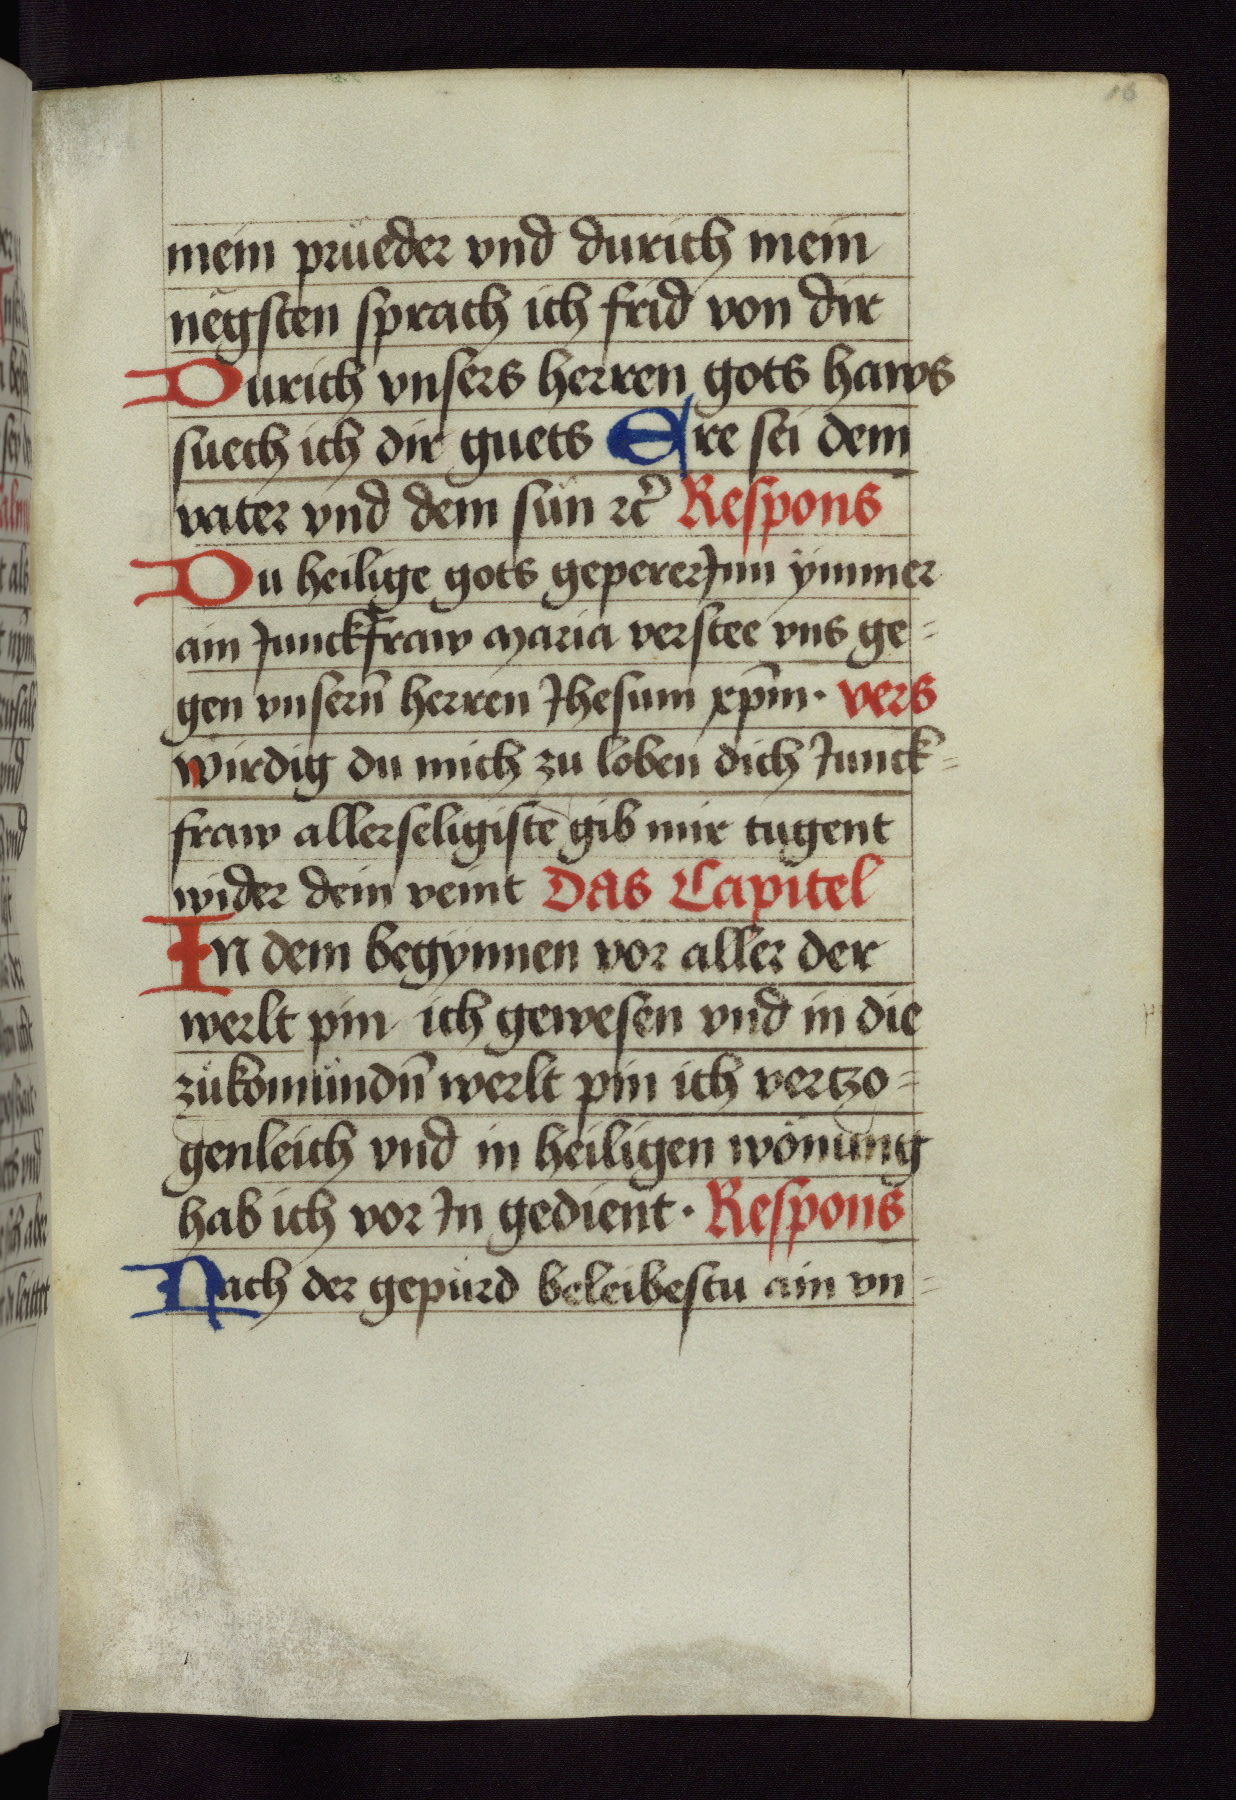 16
mein prüeder vnd durich mein
negsten sprach ich frid von dir
Durich vnsers herren gots haws
suech ich dir guets Ere sei dem
vater vnd dem sün ꝛc̃ Respons
Du heilige gots gepererJnn ÿmmer
ain Junckfraw maria verstee vns ge=
gen vnserñ herren Jhesum xp̄m · vers
wirdig du mich zu loben dich Junck=
fraw allerseligiste gib mir tugent
wider dein veint Das Capitel
In dem begÿnnen vor aller der
werlt pin ich gewesen vnd in die
zůkomůndñ werlt pin ich vertzo=
genleich vnd in heiligen wönung
hab ich vor Jn gedient · Respons
Nach der gepůrd beleibestu ain vn=